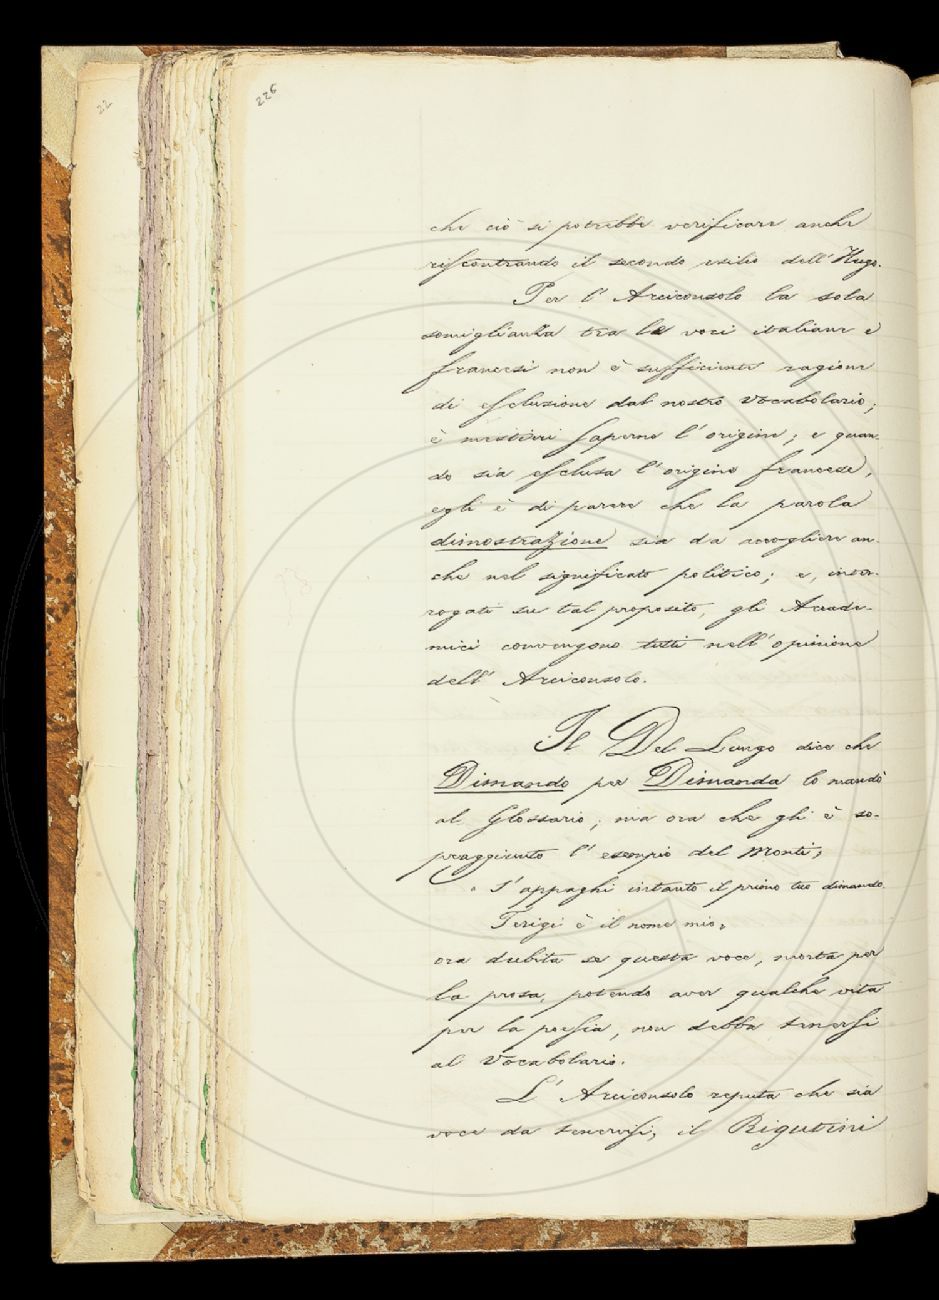 22
226
che ciò si potrebbe verificare anche
riscontrando il secondo esilio dell'Hugo.
Per l'Arciconsolo la sola
somiglianza tra le voci italiane e
francesi non è sufficiente ragione
di esclusione dal nostro Vocabolario;
è mestieri saperne l'origine; e quan-
do sia esclusa l'origine francese,
egli è di parere che la parola
dimostrazione sia da accogliere an-
che nel significato politico; e, inter-
rogati su tal proposito, gli Accade-
mici convengono tutti nell'opinione
dell'Arciconsolo.
Il Del Lungo dice che
Dimando per Dimanda lo mandò
al Glossario; ma ora che gli è so-
praggiunto l'esempio del Monti;
" S'appaghi intanto il primo tuo dimando
Terigi è il nome mio,
ora dubita se questa voce, morta per
la prosa, potendo aver qualche vita
per la poesia, non debba tenersi
al Vocabolario.
L'Arciconsolo reputa che sia
voce da tenersi, il Rigutini